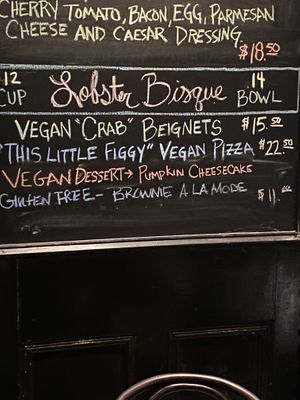 CHERRY TOMATO, BACON, EGG, PARMESAN
CHEESE AND CAESAR DRESSING
$18.50
12 CUP Lobster Bisque 14 BOWL
VEGAN "CRAB" BEIGNETS $15.50
"THIS LITTLE FIGGY" VEGAN PIZZA $22.50
VEGAN DESSERT → PUMPKIN CHEESECAKE
GLUTEN FREE - BROWNIE A LA MODE $11.00